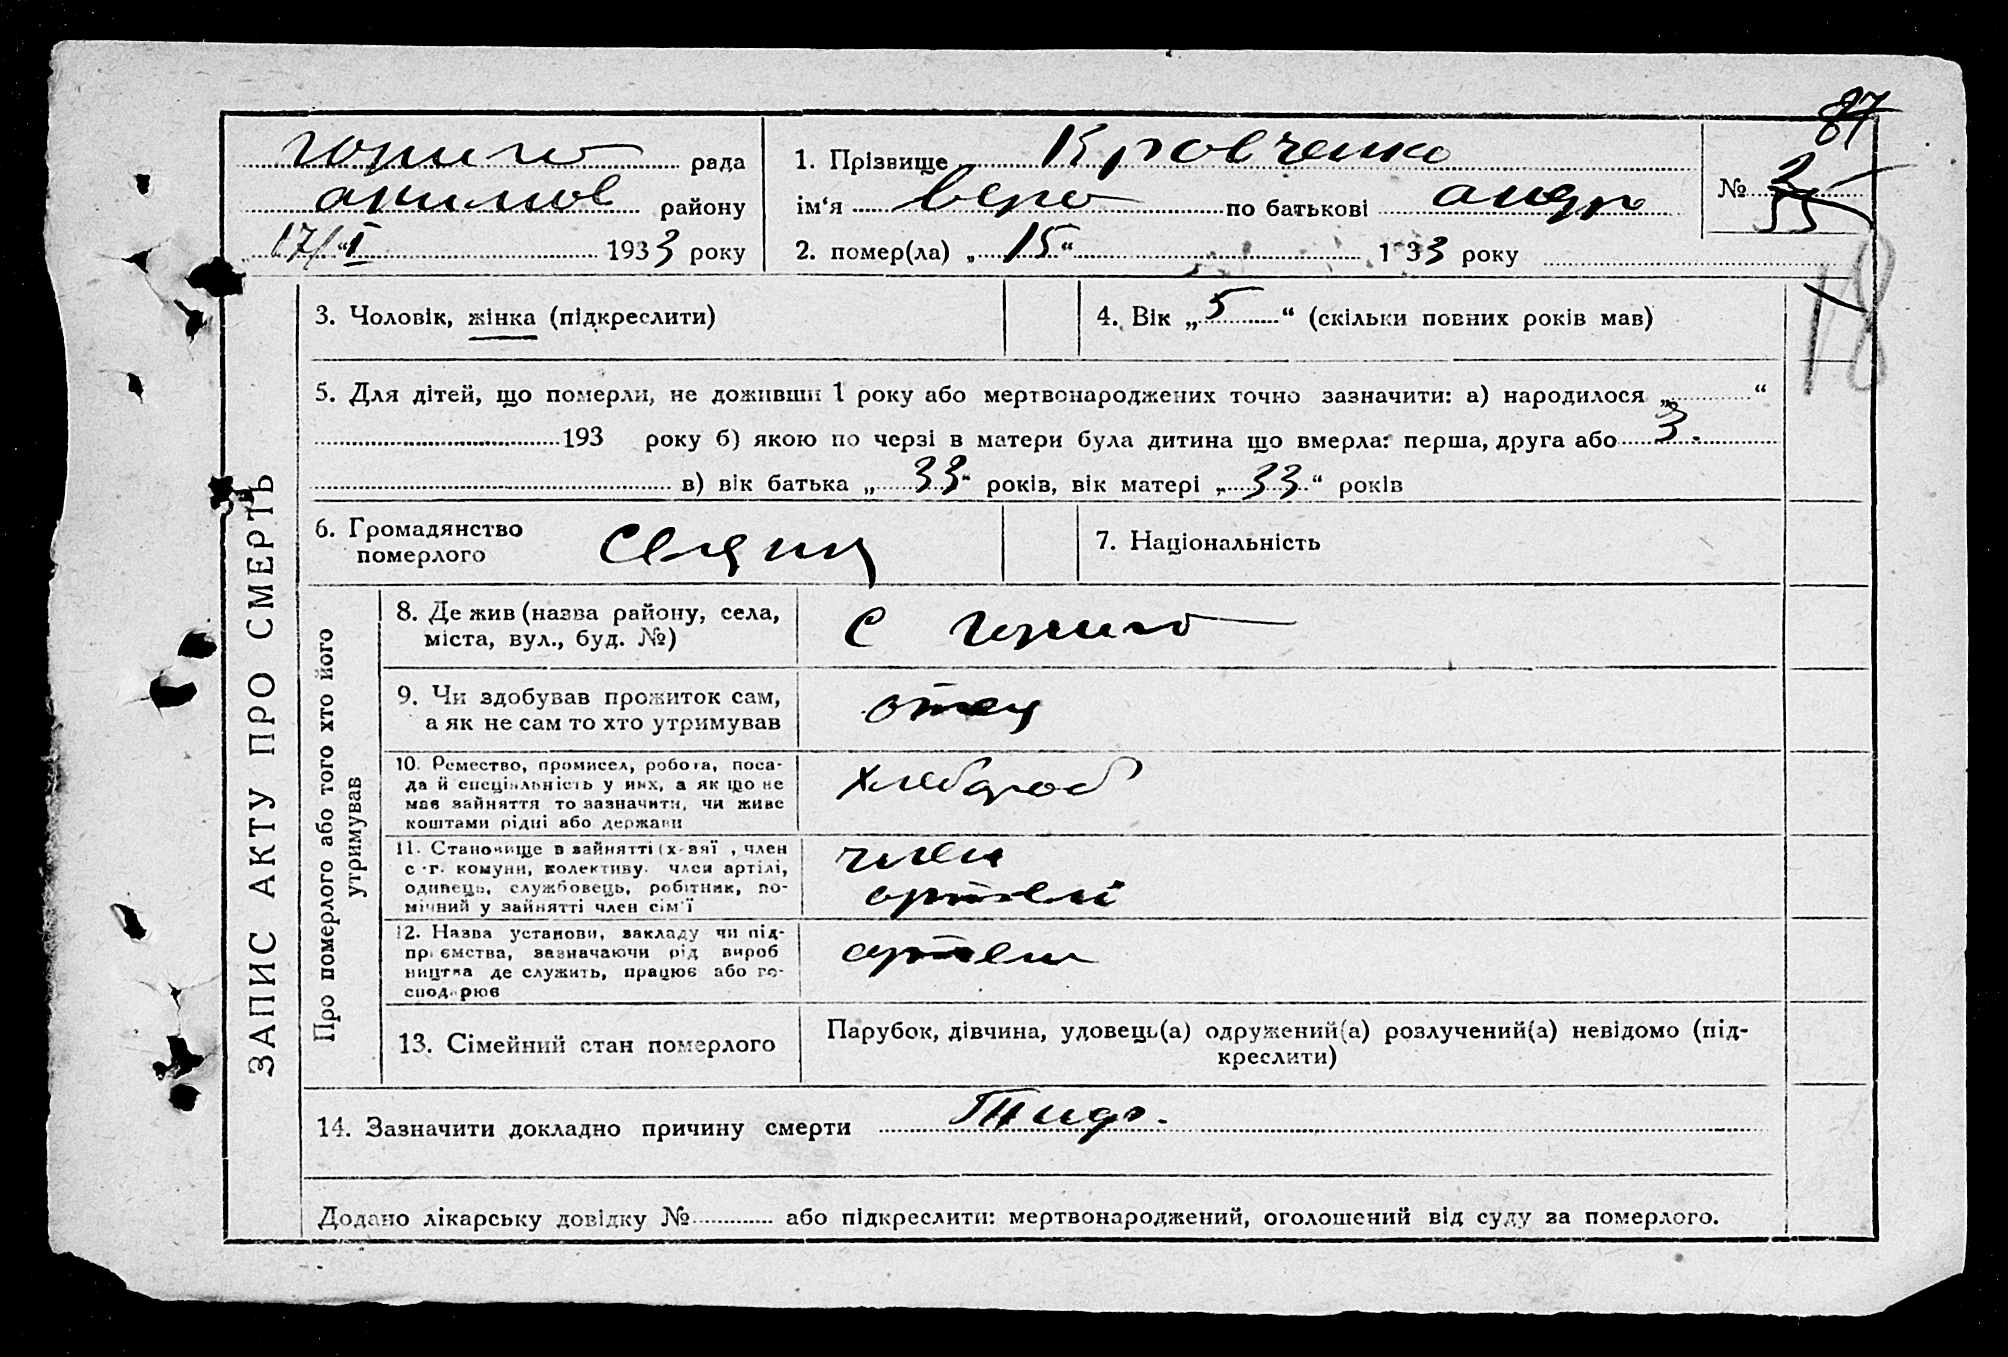 87
рада
районну
17/I 1933 року
1. Прізвище Кровченко
ім‘я вера по батькові андр
2. помер(ла) „15“ 1933 року
№
18
ЗАПИС АКТУ ПРО СМЕРТЬ
3. Чоловік, жінка (підкреслити)
4. Вік „5“ (скільки повних років мав)
5. Для дітей, що померли, не доживши 1 року або мертвонароджених точно зазначити: а) народилося „ “
193 року б) якою по черзі в матери була дитина що вмерла: перша, друга або 3.
в) вік батька „33“ років, вік матері „33“ років
6. Громадянство
померлого
7. Національність
Про померлого або того хто його
утримував
8. Де жив (назва району, села,
міста, вул., буд. №)
с
9. Чи здобував прожиток сам,
а як не сам то хто утримував
отец
10. Ремество, промисел, робота, поса-
да й спеціяльність у них, а як що не
має зайняття то зазначити, чи живе
коштами рідні або держави
хлебороб
11. Становище в зайнятті (х-вяї , член
с-г. комуни, колективу. член артілі,
одинець, службовець, робітник, по-
мічний у зайнятті член сім'ї
член
артели
12. Назва установи, закладу чи під-
приємства, зазначаючи рід вироб
ництва де служить, працює або го-
сподарює
артели
13. Сімейний стан померлого
Парубок, дівчина, удовець(а) одружений(а) розлучений(а) невідомо (під-
креслити)
14. Зазначити докладно причину смерти
Додано лікарську довідку № або підкреслити: мертвонароджений, оголошений від суду за померлого.